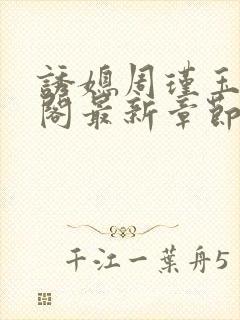 誘媳周瑾玉
閣最新章節
千江一葉舟5